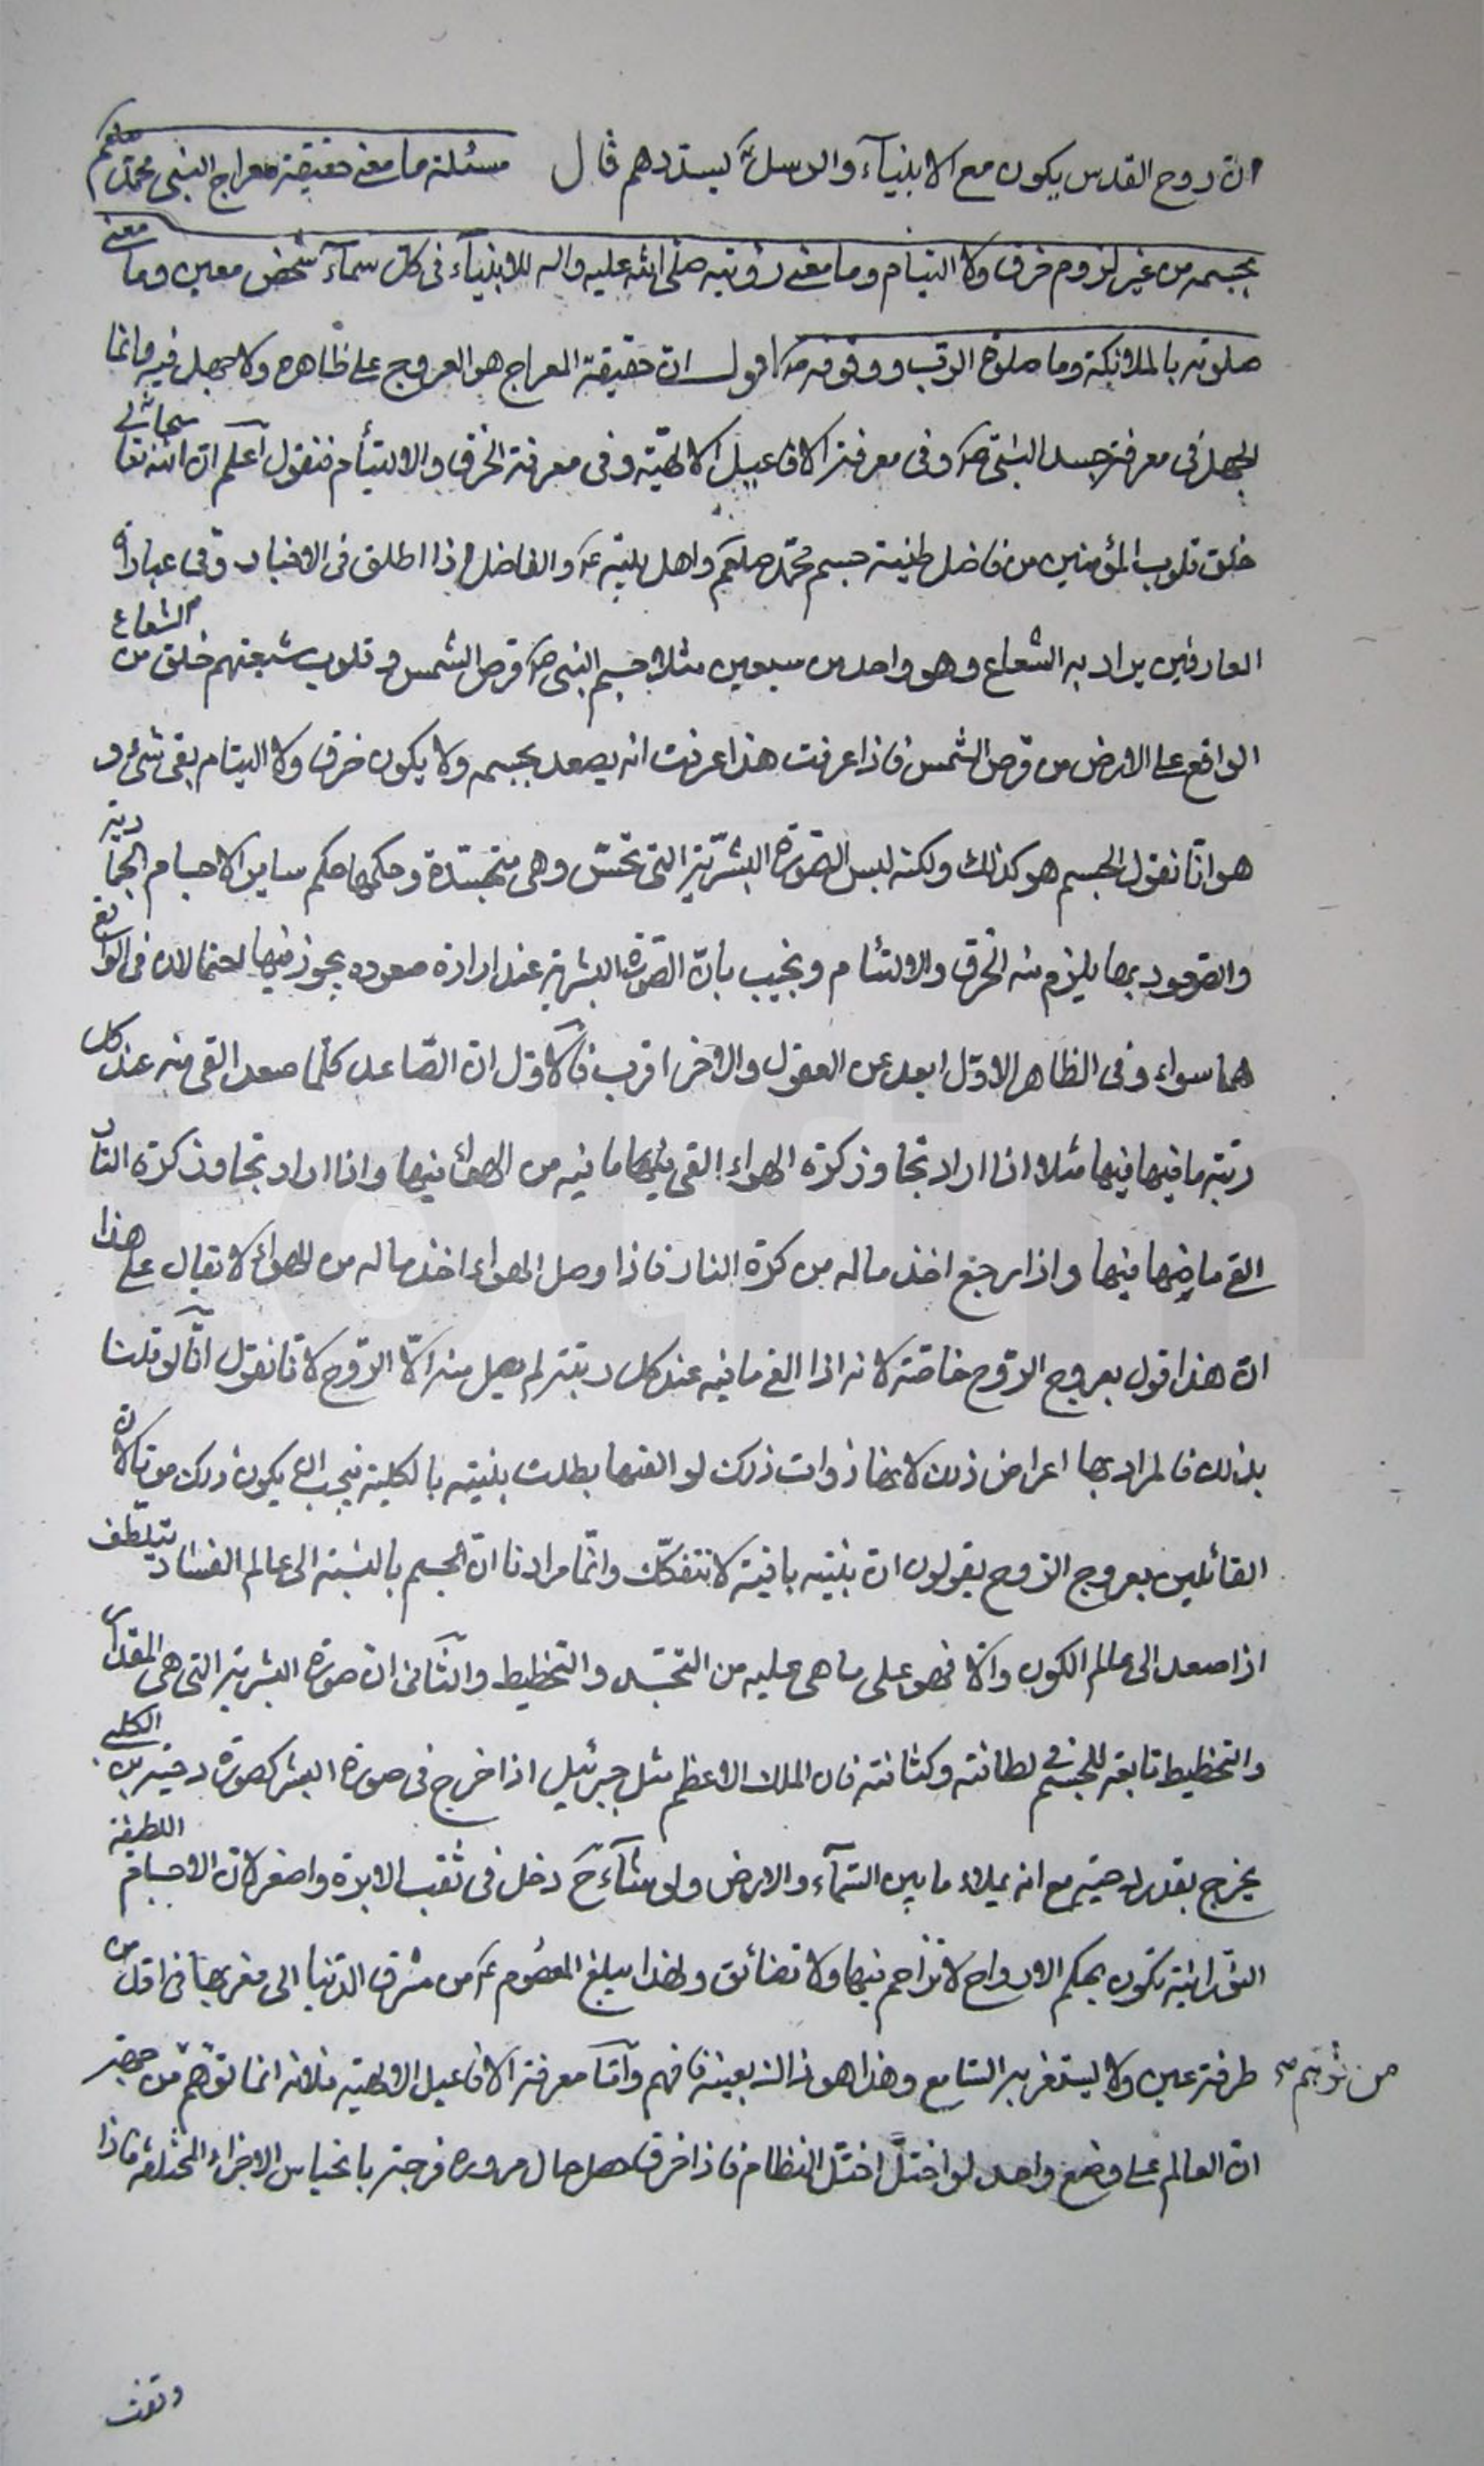 ان روح القدس يكون مع الانبياء والرسل يسددهم قال مسئلة ما معنى حقيقة معراج النبى محمد صلعم
بجسمه من غير لزوم خرق ولا التيام وما معنى رؤيته صلى الله عليه واله للانبياء فى كل سماء شخص معين وما معنى
صلوته بالملائكة وما صلوة الرب ووقوفه ص اقول ان حقيقة المعراج هو العروج على ظاهره ولا جهل فيه وانما
الجهل فى معرفة جسد النبى ص وفى معرفة الافاعيل الالهية وفى معرفة الخرق والالتيأم فنقول اعلم ان الله سبحانه تعالى
خلق قلوب المؤمنين من فاضل طينة جسم محمد صلعم واهل بيته ع والفاضل اذا اطلق فى الاخبار وفى عبارة
العارفين يراد به الشعاع وهو واحد من سبعين مثلا جسم النبى ص قرص الشمس وقلوب شيعتهم خلق من الشعاع
الواقع على الارض من قرص الشمس فاذا عرفت هذا عرفت انه يصعد بجسمه ولا يكون خرق ولا التيام بقى شئ و
هو انا نقول الجسم هو كذلك ولكنه لبس الصورة البشرية التى تحس وهى متجسدة وحكمها حكم ساير الاجسام الجمادية
والصعود بها يلزم منه الخرق والالتئام ونجيب بان الصورة البشرية عند ارادة صعوده يجوز فيها احتمالان فى الواقع
هما سواء وفى الظاهر الاول ابعد عن العقول والاخر اقرب فالاول ان الصاعد كلما صعد القى منه عند كل
رتبة ما فيها فيها مثلا اذا اراد تجاوز كرة الهواء القى ما فيه من الهواء فيها واذا اراد تجاوز كرة النار
القى ما فيها فيها واذا رجع اخذ ماله من كرة النار فاذا وصل الهواء اخذ ما له من الهواء لا يقال على هذا
ان هذا قول بعروج الروح خاصة لانه اذا القى ما فيه عند كل رتبة لم يصل منه الا الروح لانا نقول انا لو قلنا
بذلك فالمراد بها اعراض ذلك لانها ذوات ذلك لو القيها بطلت بنيته بالكلية فيجب ان يكون ذلك موتا لان
القائلين بعروج الروح يقولون ان بنيته باقية لا تتفكك وانما مرادنا ان الجسم بالنسبة الى عالم الفساد يتلطف
اذا صعد الى عالم الكون والا فهو على ما هى عليه من التجسد والتخطيط والثانى ان صورة البشرية التى هى المقدار
والتخطيط تابعة للجسم فى لطافته وكثافته فان الملك الاعظم مثل جبرئيل اذا خرج فى صورة البشر كصورة دحية بن الكلبى
يخرج بقدر دحية مع انه يملاء ما بين السماء والارض ولو شاء ح دخل فى ثقب الابرة واصغر لان الاجسام اللطيفة
النورانية تكون بحكم الارواح لا تزاحم فيها ولا تضائق ولهذا يبلغ المعصوم ع من مشرق الدنيا الى مغربها فى اقل من
طرفة عين ولا يستغربه السامع وهذا هو ذلك بعينه فافهم واما معرفة الافاعيل الالهية فلانه انما توهم من جهة
من توهم
ان العالم على وضع واحد لو اختل اختل النظام فاذا خرق حصل حال مروره فرجة بانحياس الاجزاء المختلفة فاذا
وقفت